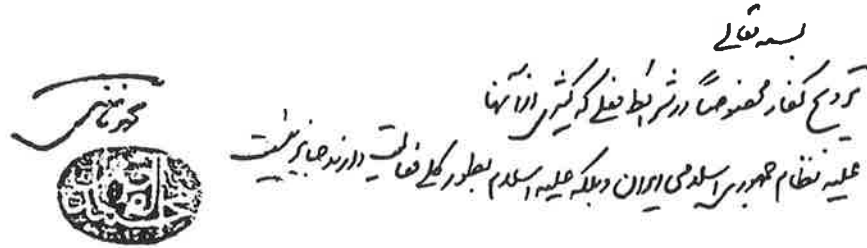 بسمه تعالی
ترویج کفار مخصوصاً در شرائط فعلی که کثیری از آنها
علیه نظام جمهوری اسلامی ایران و بلکه علیه اسلام بطور کلی فعالیت دارند جایز نیست